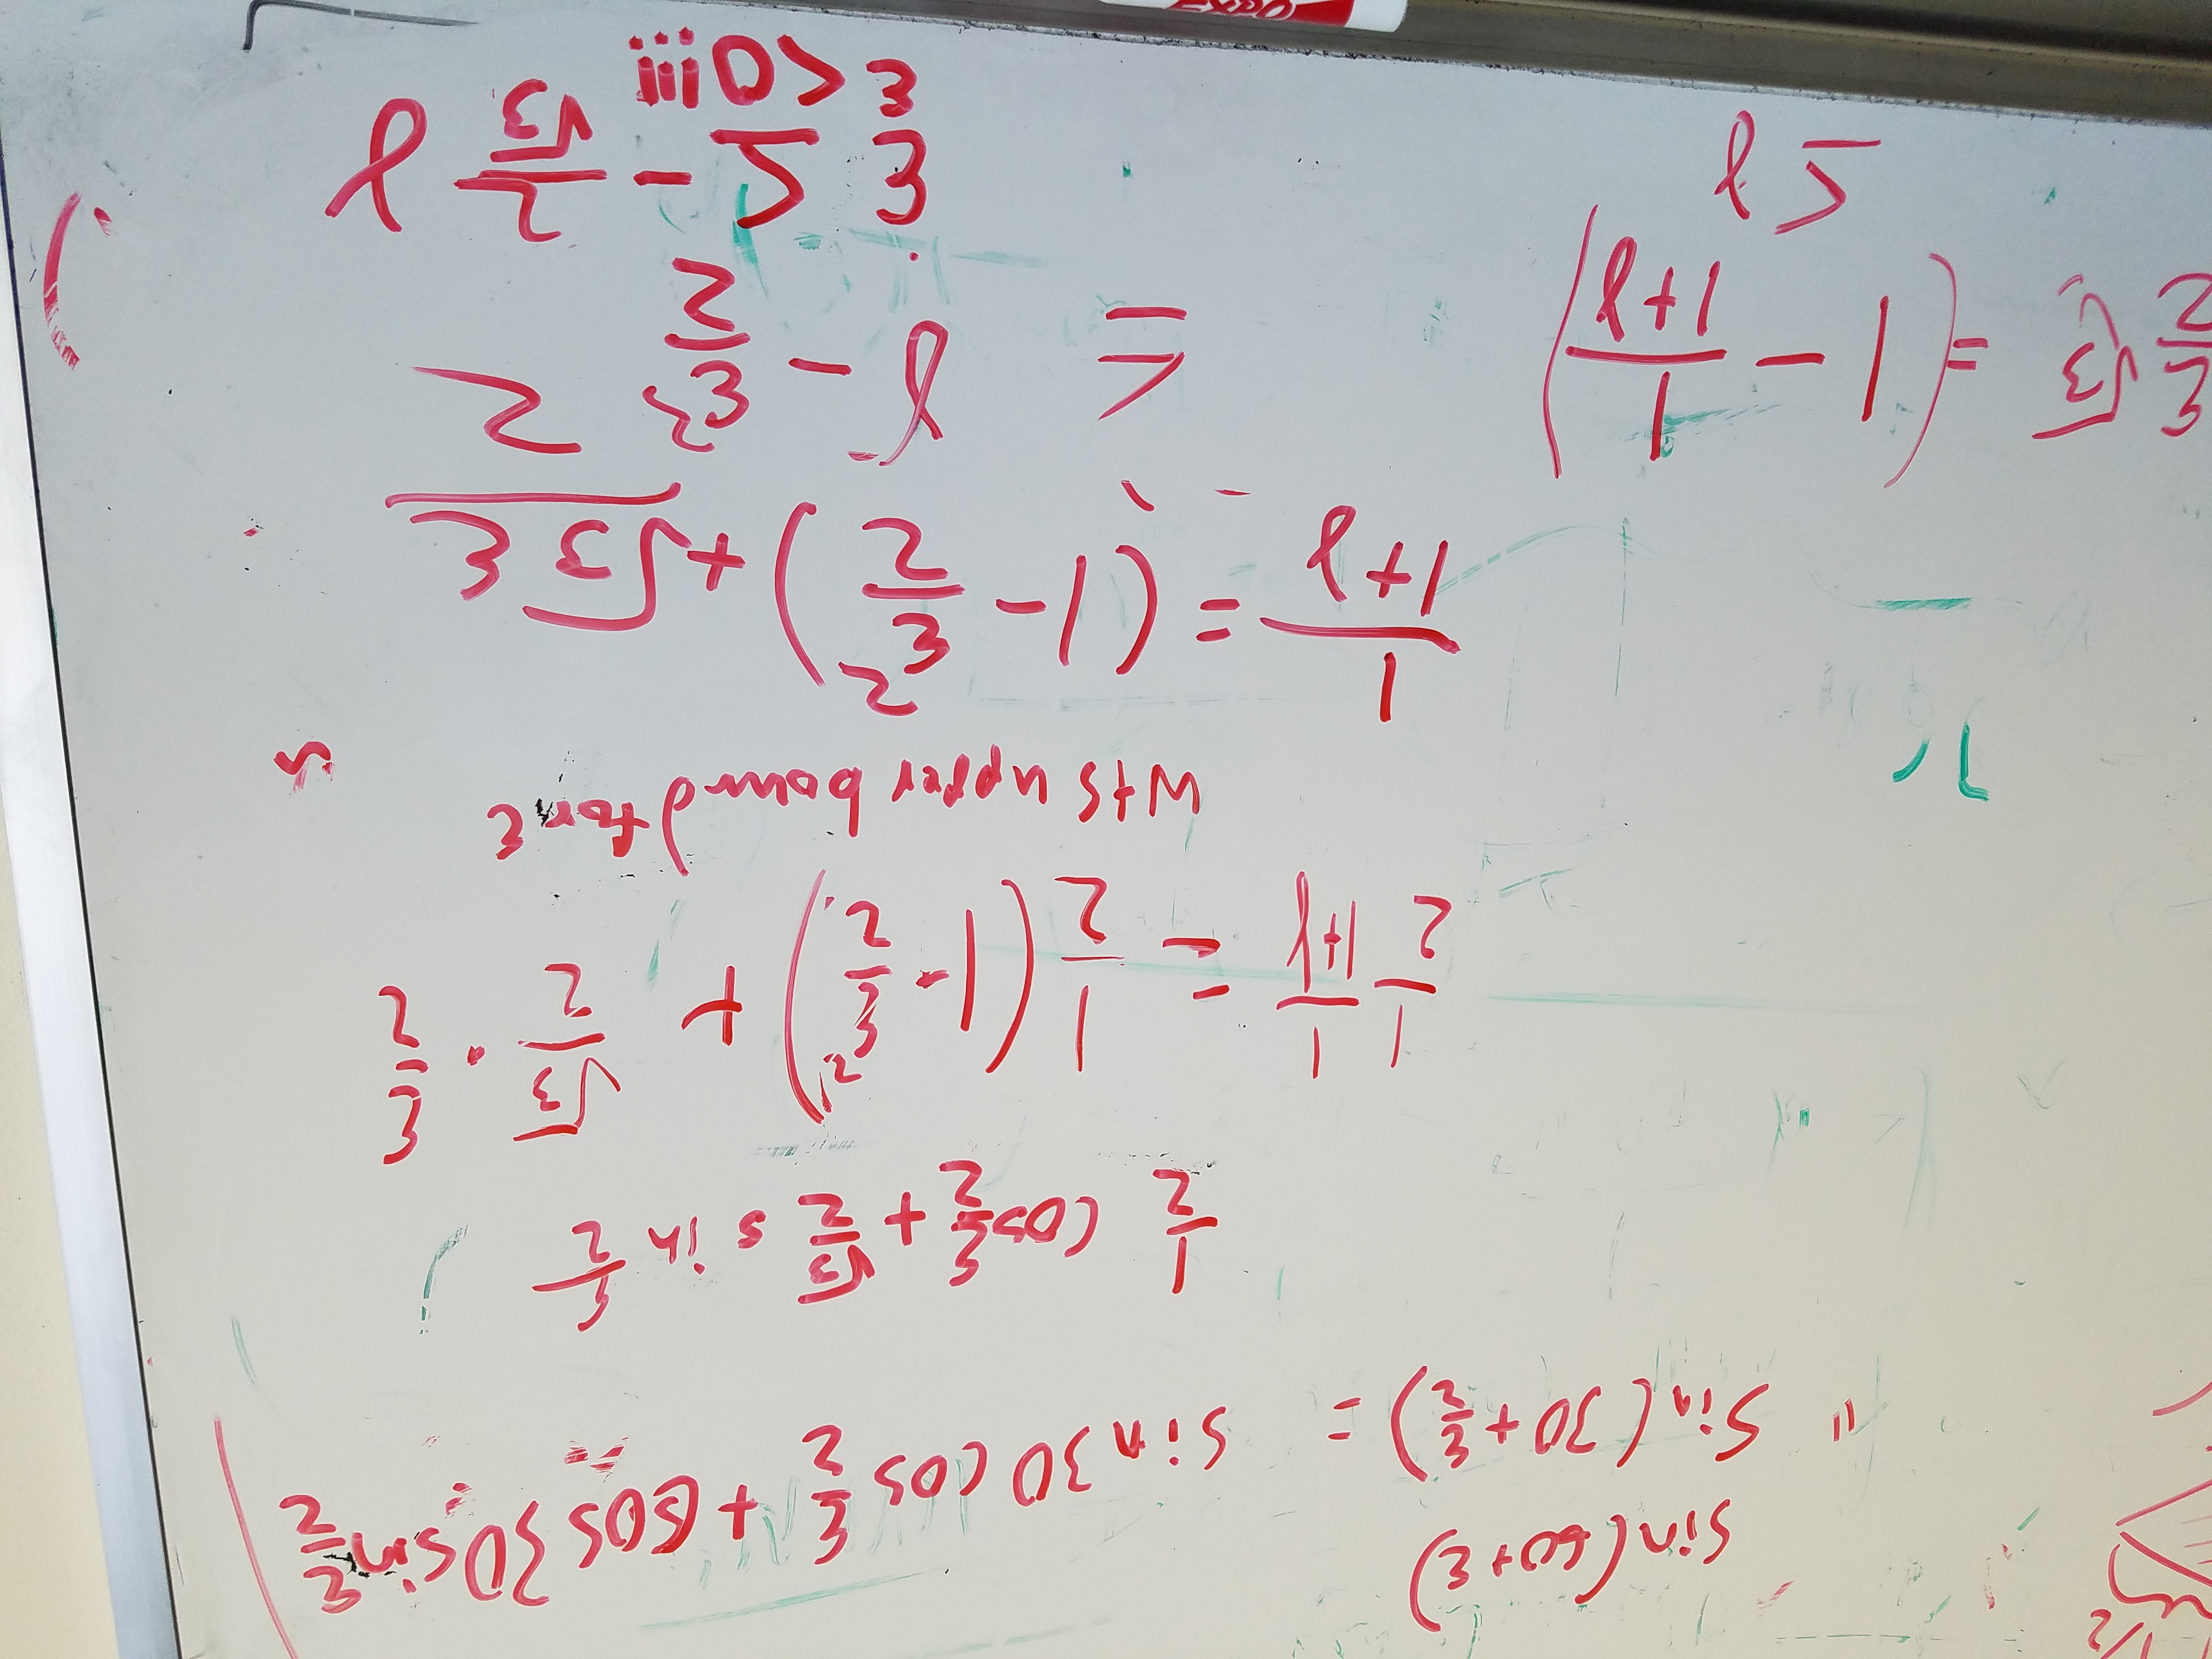 1/2
sin(60+ε)
" Sin(30+ε/2) = sin30 cos ε/2 + cos 30 sin ε/2
1/2 cos ε/2 + √3/2 sin ε/2
1/2 1/(1+γ) = 1/2 (1 - ε²/2) + √3/2 · ε/2
wts upper bound for ε
1/(1+γ) = (1 - ε²/2) + √3 ε/2
ε/2 √3 = (1 - 1/(1+γ)) ≤ γ - ε²/2
≤ γ
ε ≤ - 2/√3 γ
ε < 0!!!
EXPO